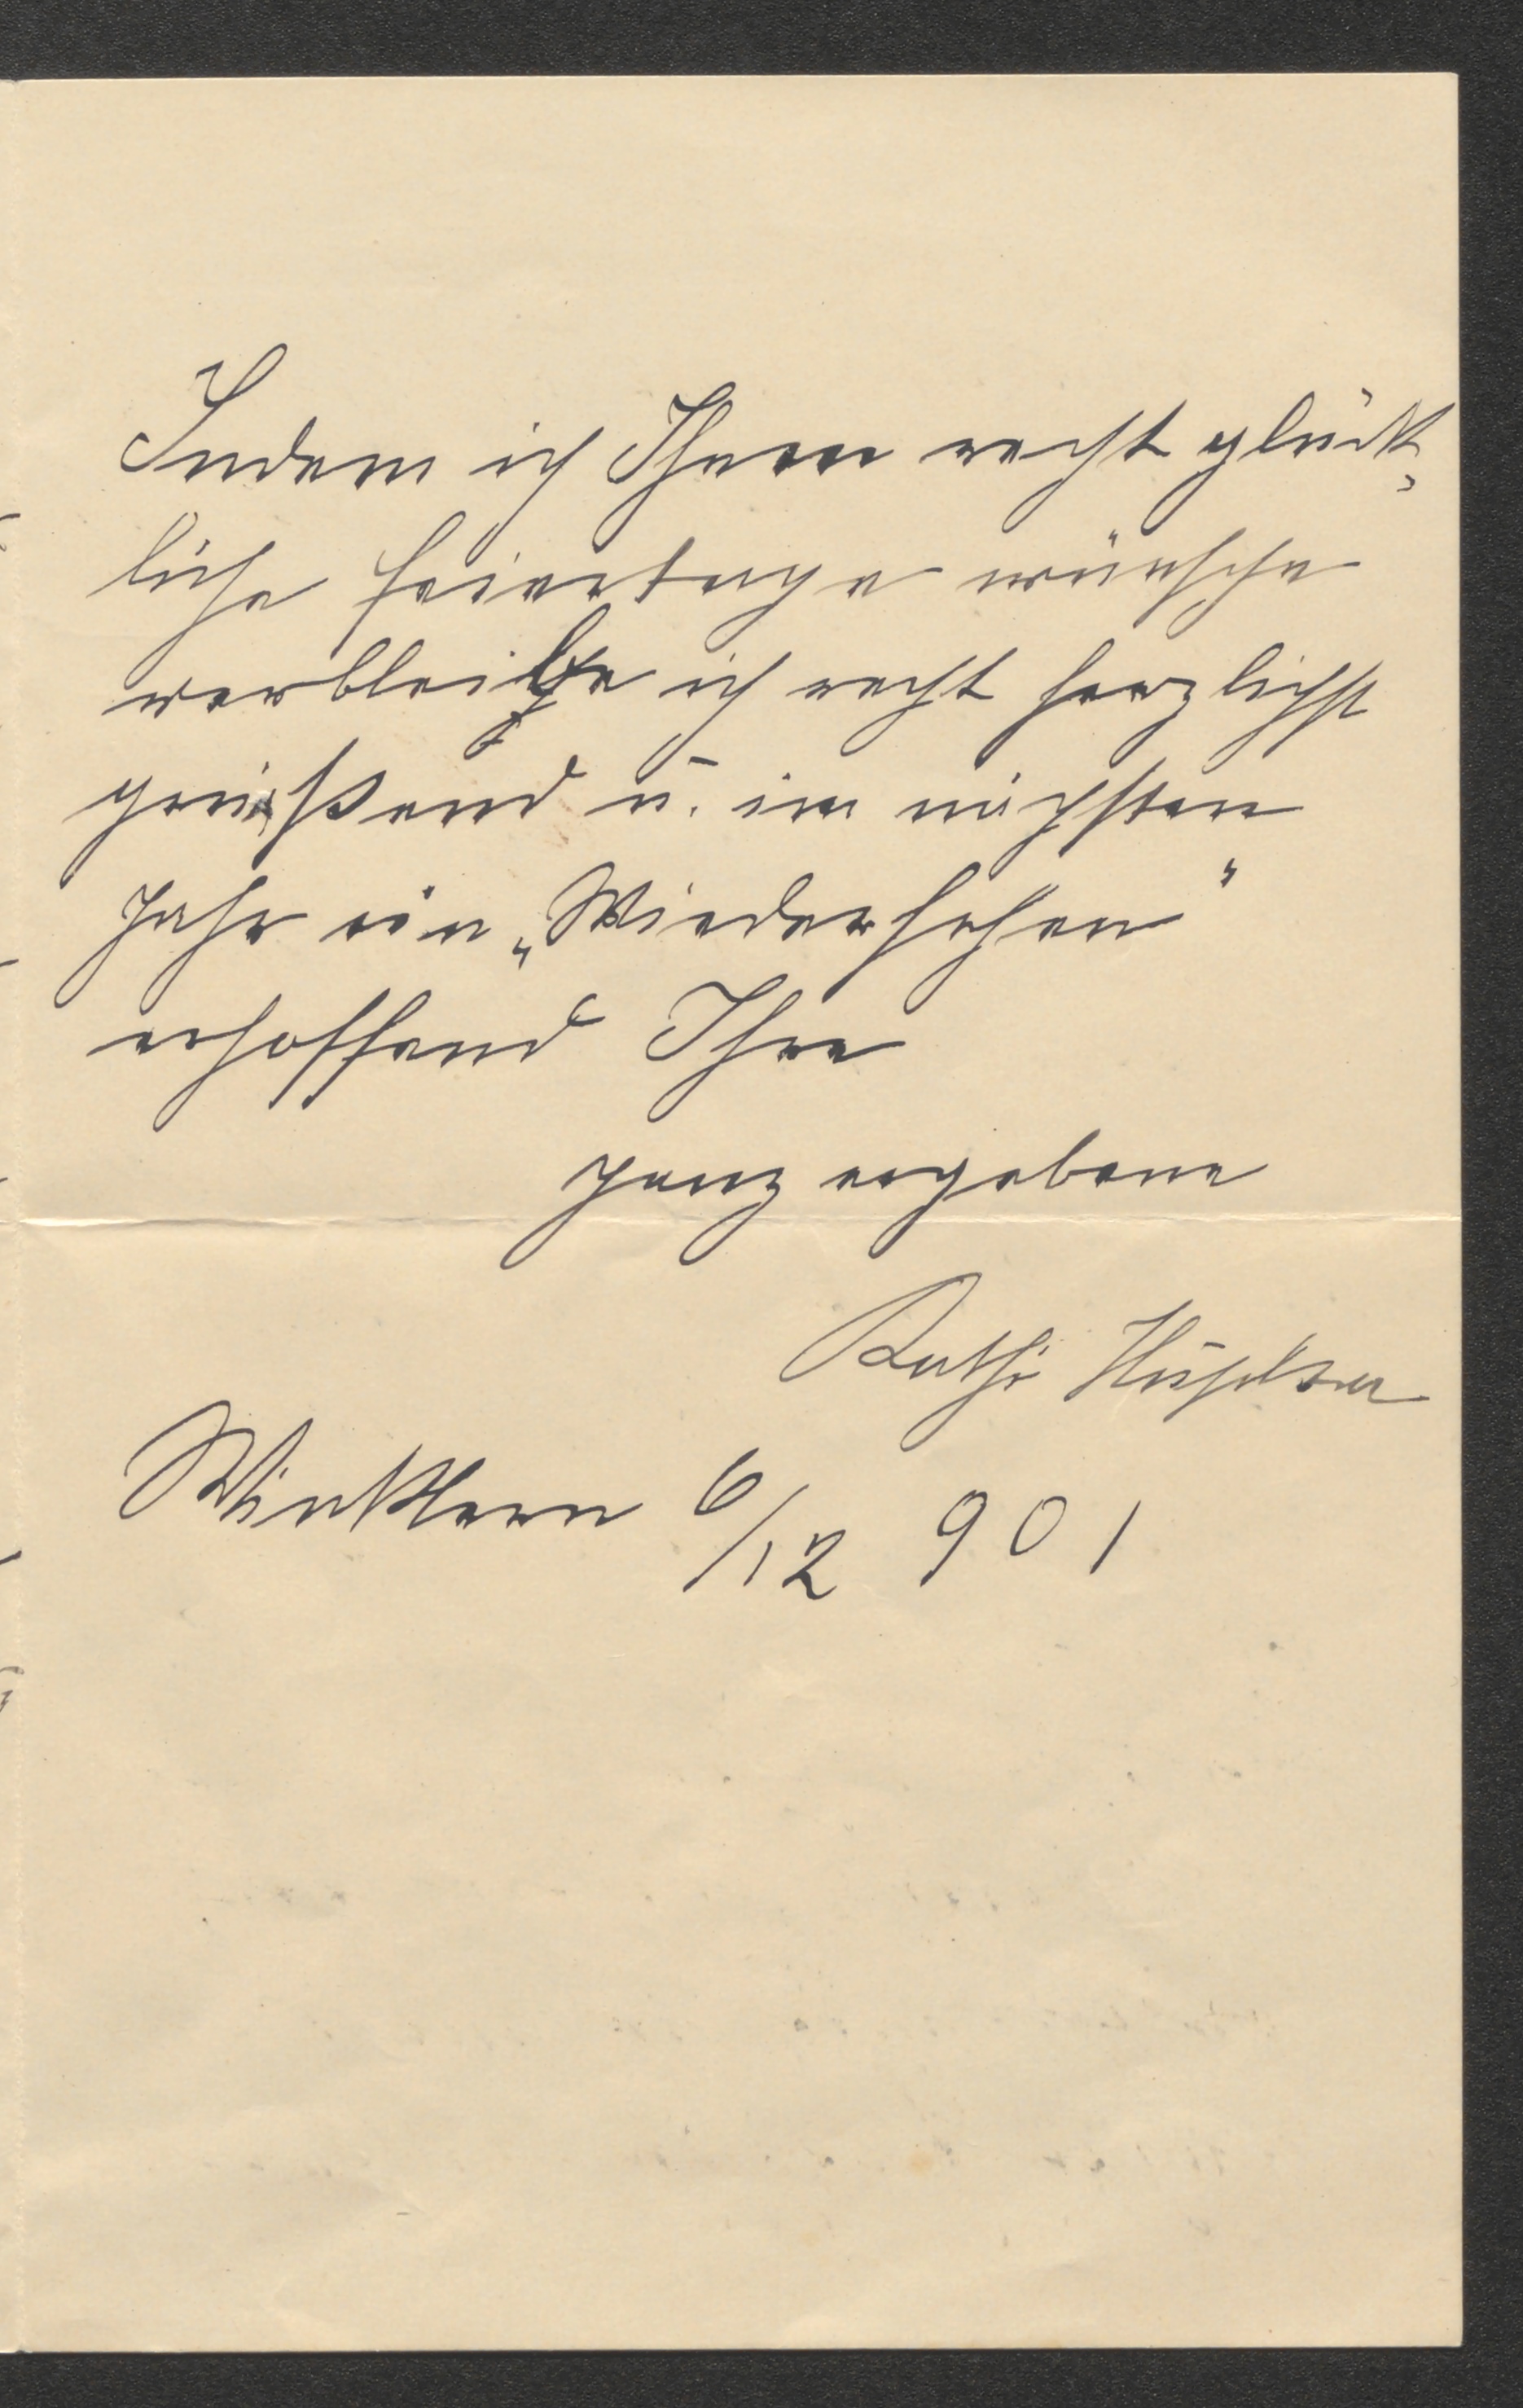 Indem ich Ihnen recht glück-
liche Feiertage wünsche
verbleibe ich recht herzlichst
grüßend u. im nächsten
Jahr ein „Wiedersehen“
erhoffend Ihre
ganz ergebene
Kathi
Winklern 6/12 901